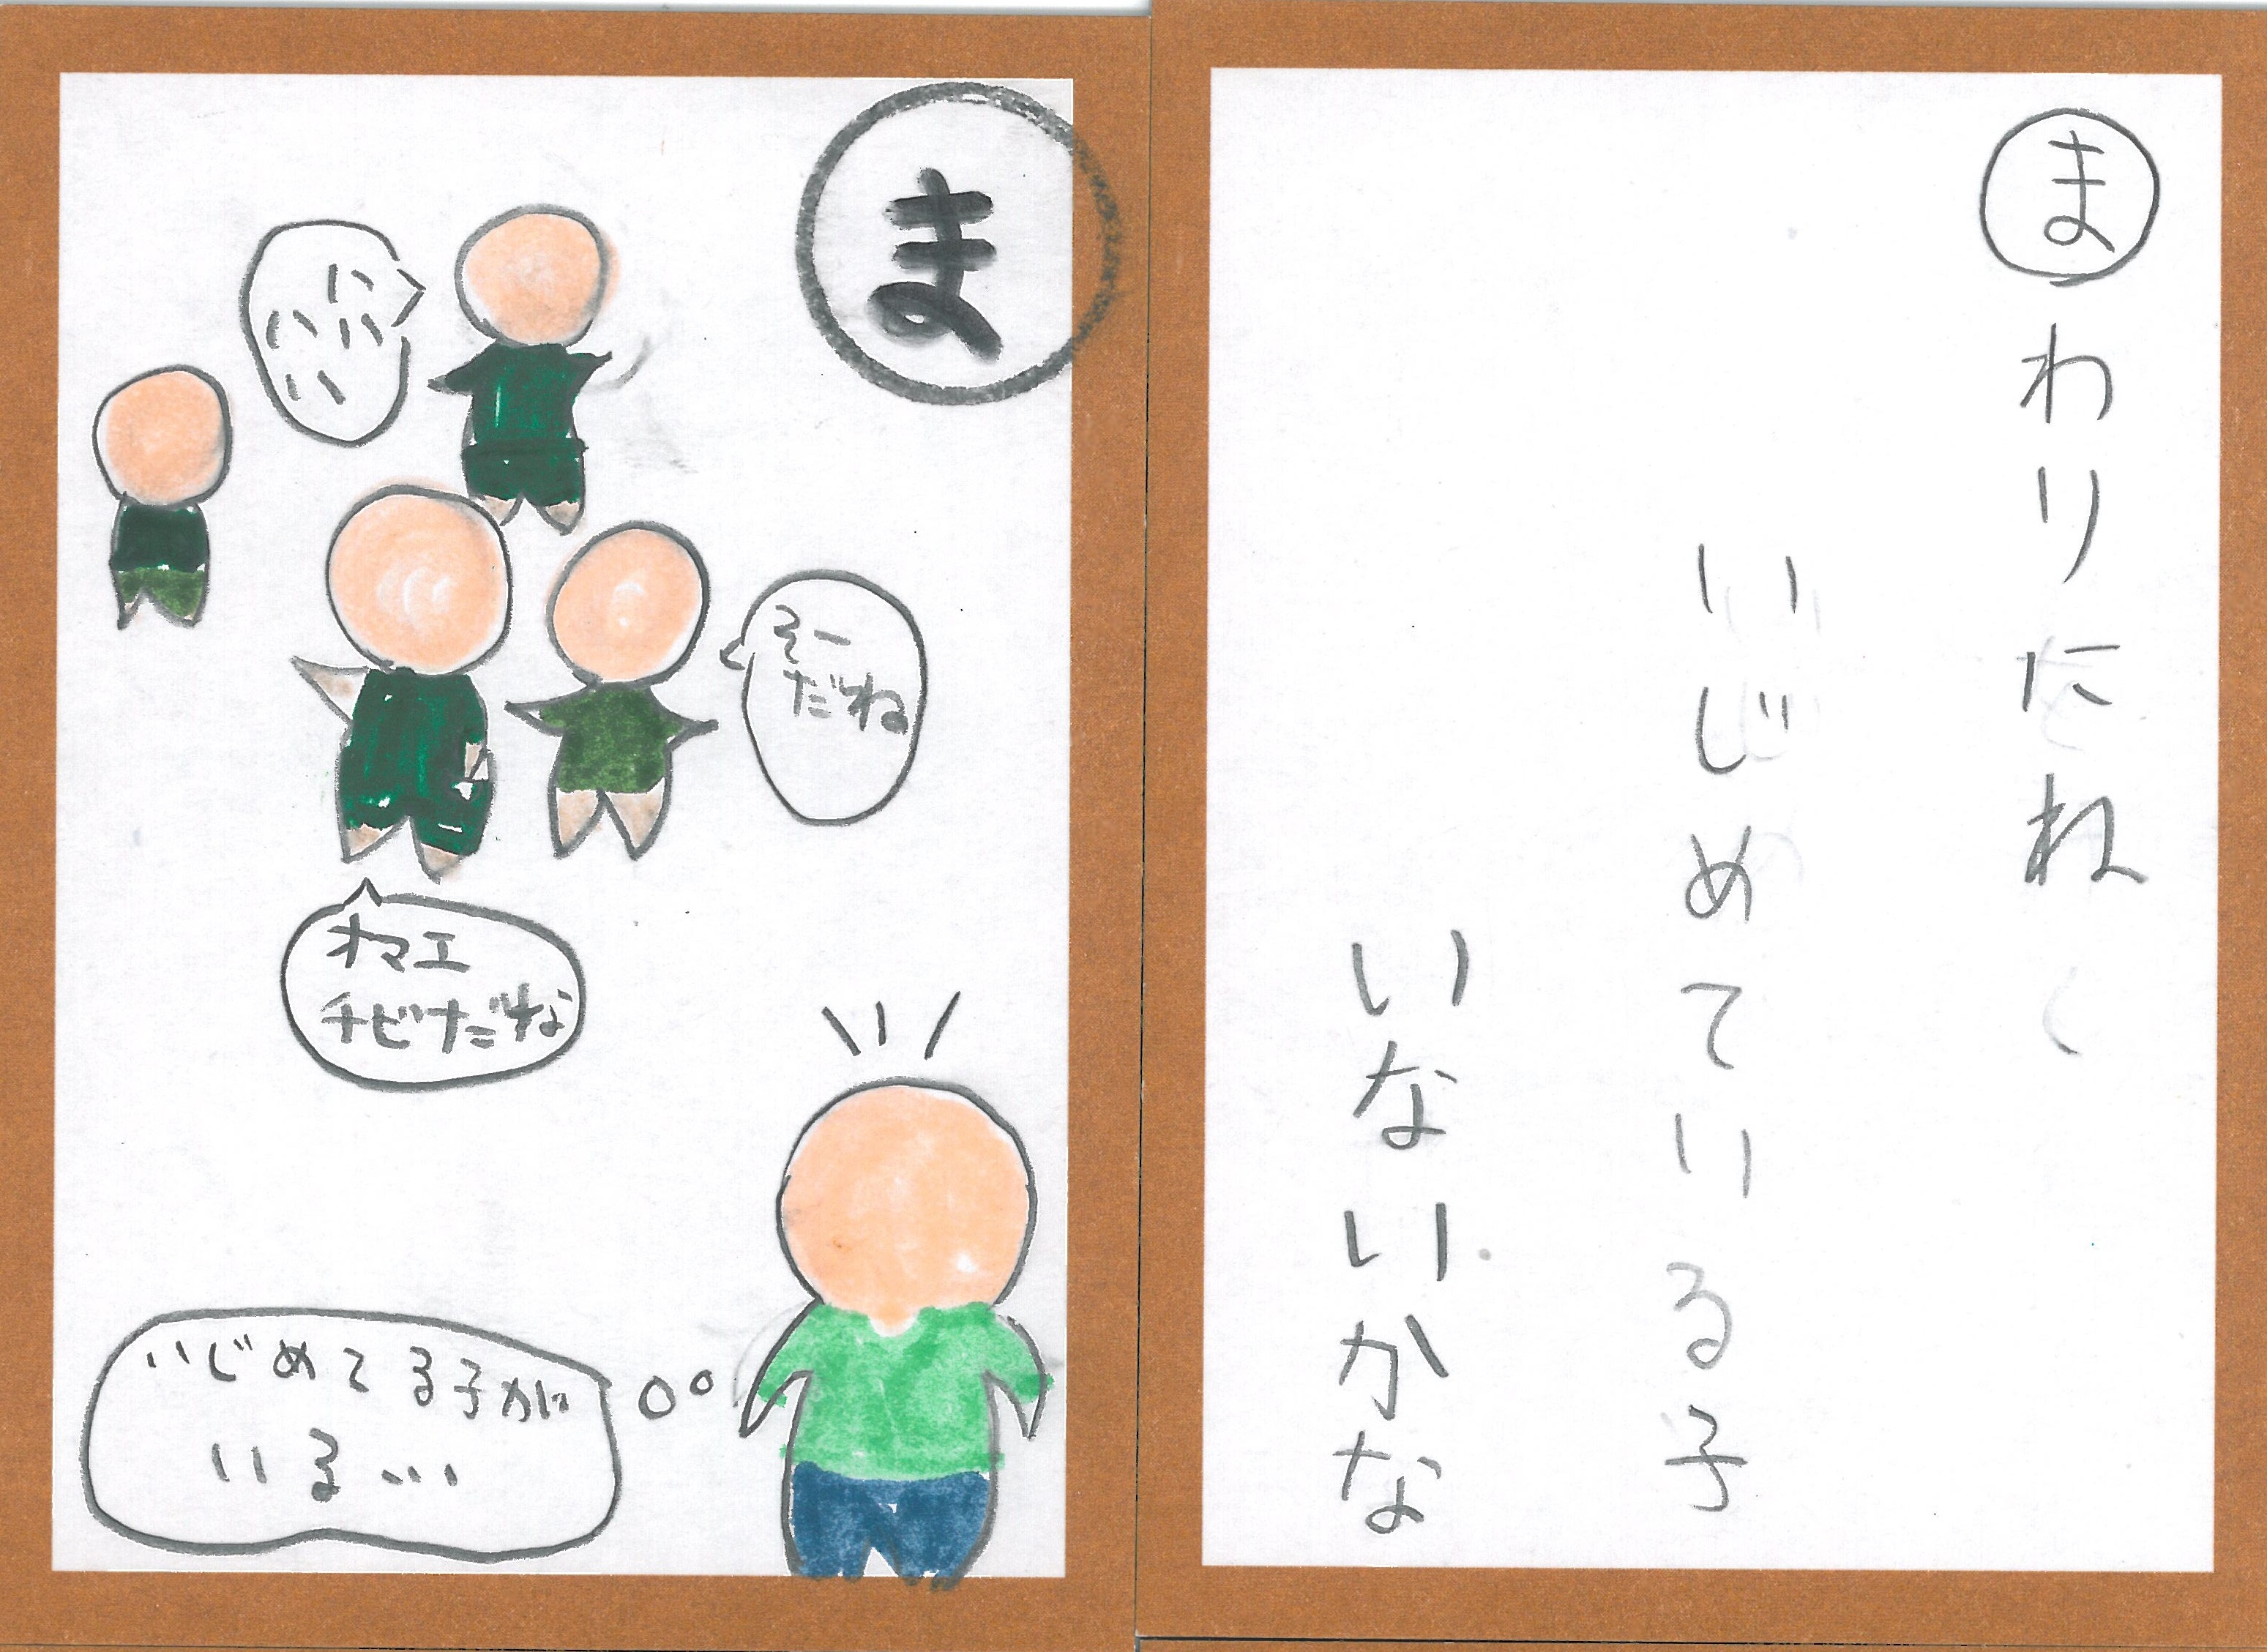 ま
ハハ
ハハ
そー
だね
オマエ
チビだな
いじめてる子が
いる…
まわりにね
いじめている子
いないかな